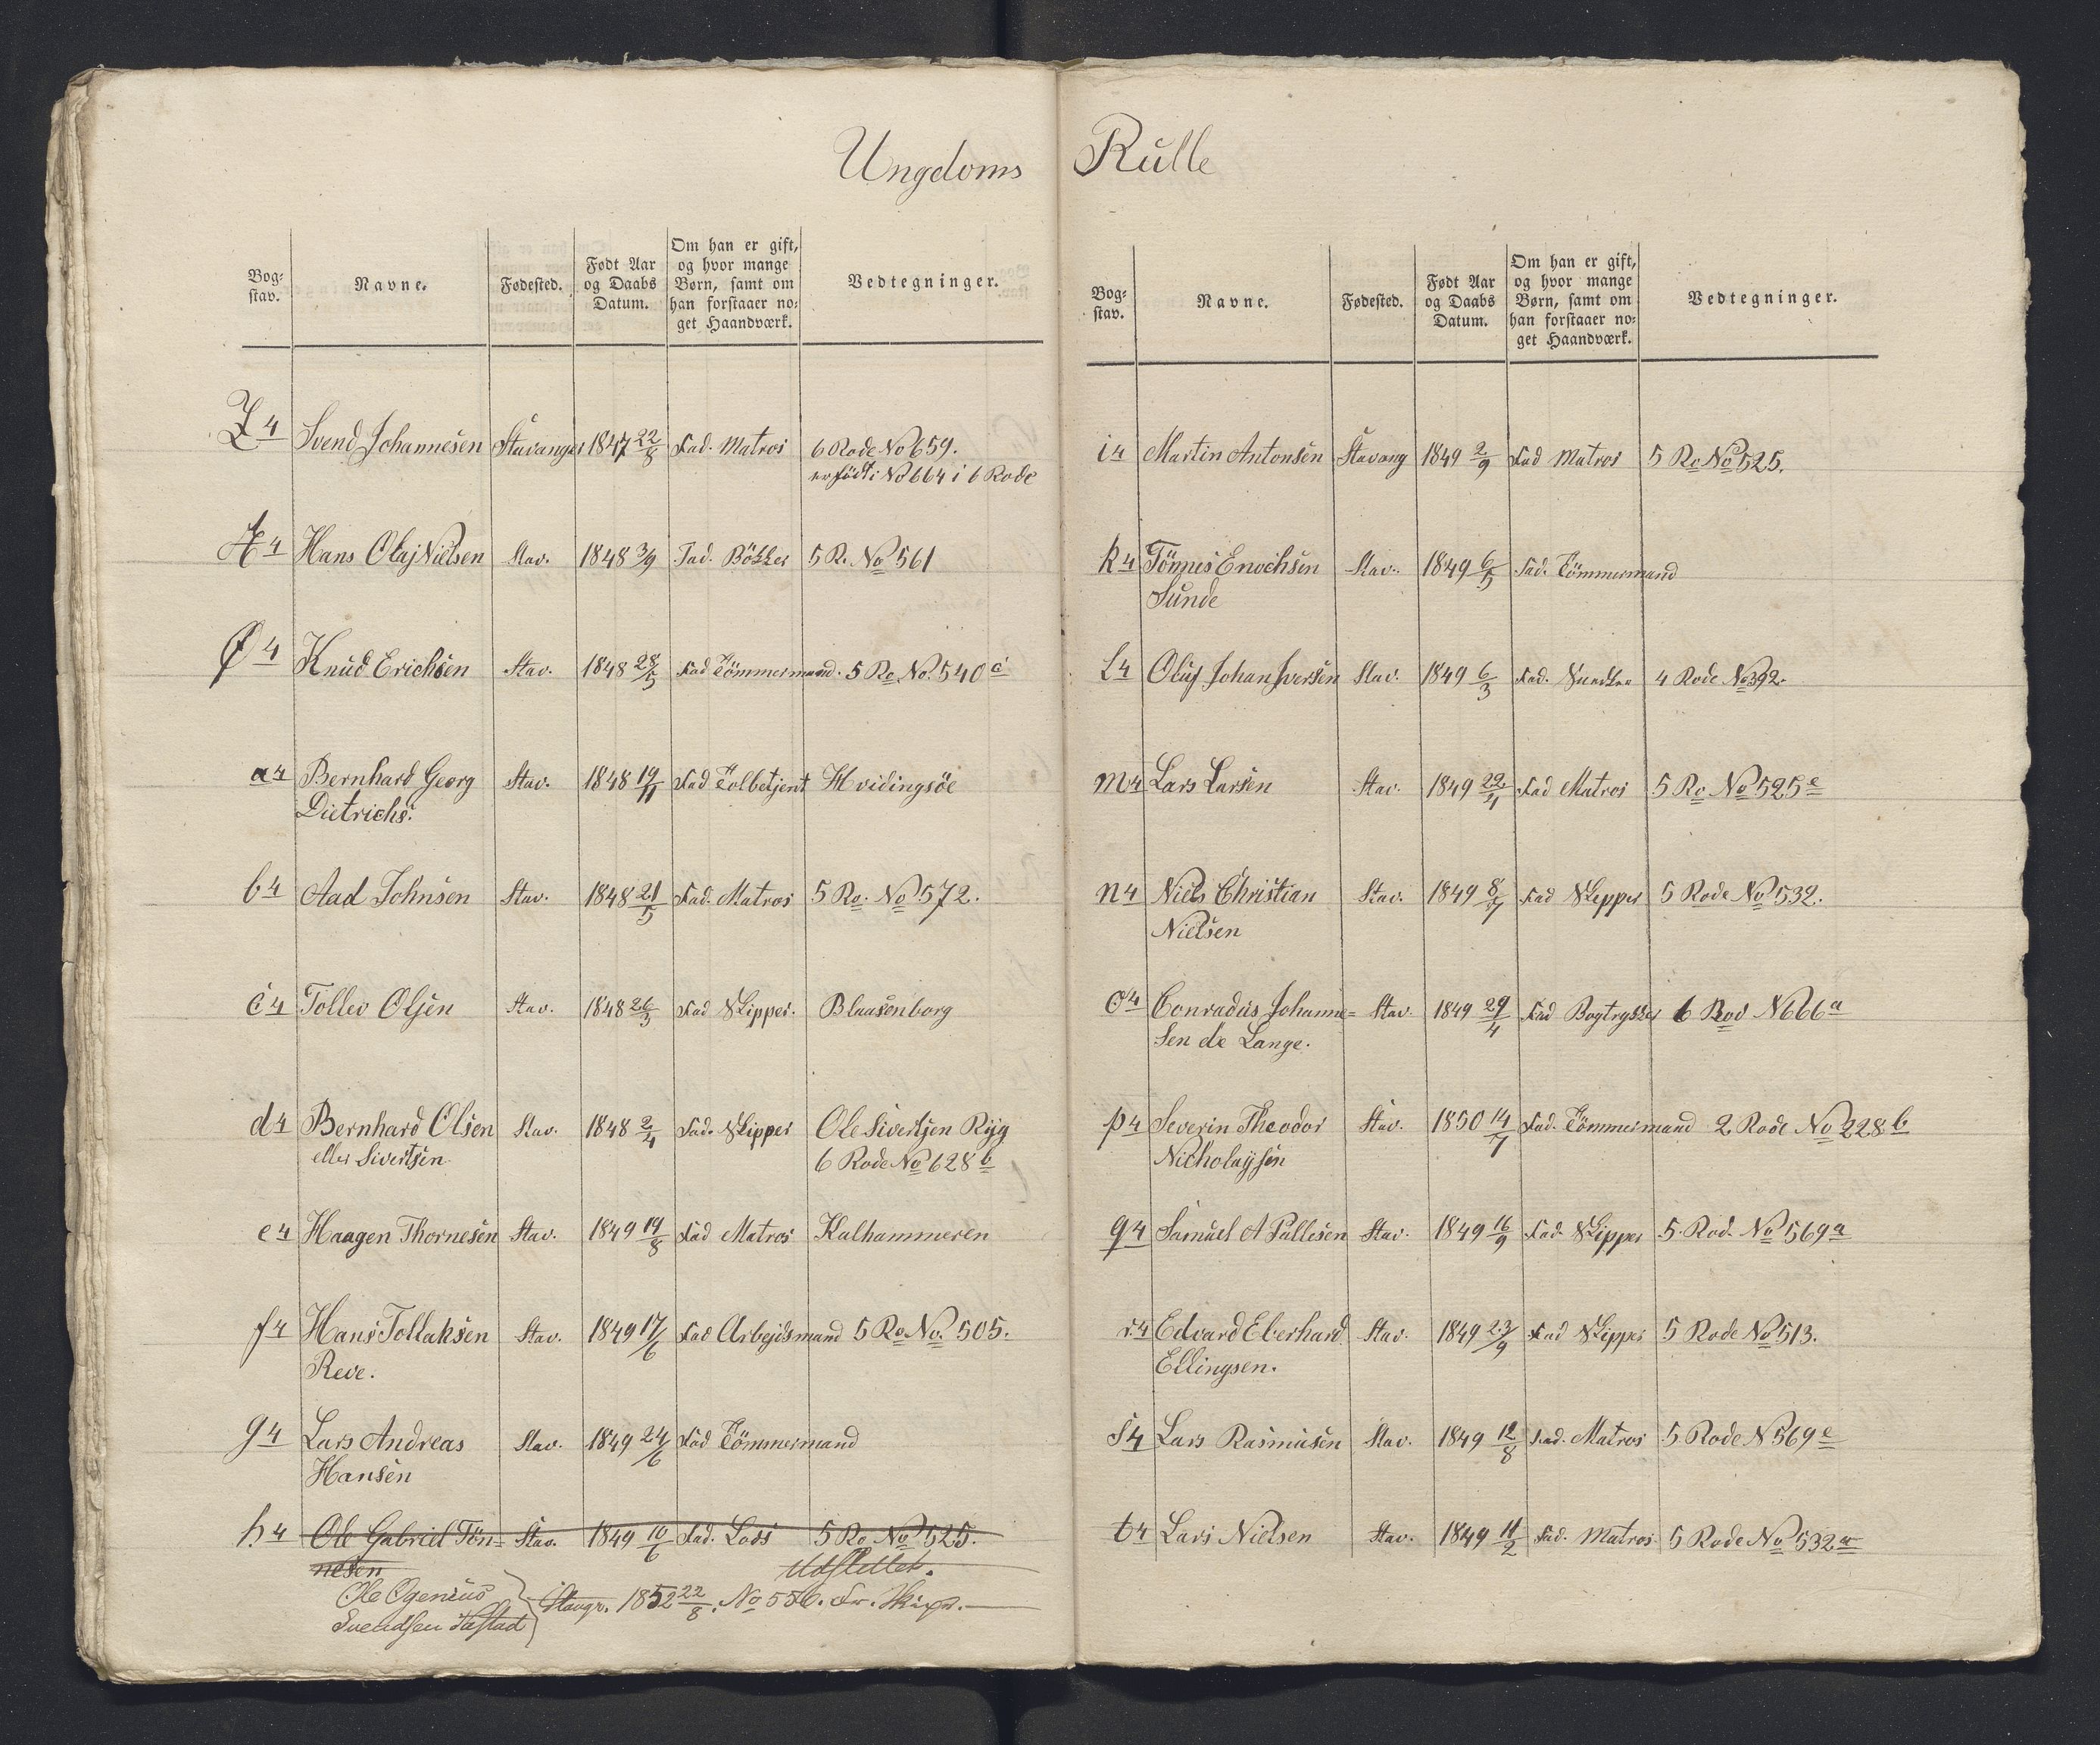 Ungdoms Rulle
Bog-
stav.
Navne.
Fødested.
Født Aar
og Daabs
Datum.
Om han er gift,
og hvor mange
Børn, samt om
han forstaaer no-
get Haandværk.
Vedtegninger.
Z4 Svend Johannesen Stavanger 1847 22/8 Fad. Matros 6 Rode No 659.
er født i No 664 i 6 Rode
Æ4 Hans Olaj Nielsen Stav. 1848 3/9 Fad. Bökker 5 R. No 561
Ø4 Knud Erichsen Stav. 1848 28/5 Fad Tömmermand. 5 Ro. No. 540 c
a4 Bernhard Georg Stav. 1848 19/11 Fad Tolbetjent Hvidingsöe
Dietrichs.
b4 Aad Johnsen Stav. 1848 21/5 Fad. Matros 5 Ro. No 572.
c4 Tollev Olsen Stav. 1848 26/3 Fad Skipper. Blaasenborg
d4 Bernhard Olsen Stav. 1848 2/4 Fad. Skipper Ole Sivertsen Ryg
eller Sivertsen 6 Rode No 628 b
e4 Haagen Thornesen Stav. 1849 19/8 Fad Matros Kalhammeren
f4 Hans Tollaksen Stav. 1849 17/6 Fad Arbejdsmand 5 Ro No. 505.
Reve.
g4 Lars Andreas Stav. 1849 24/6 Fad Tömmermand
Hansen
h4 Ole Gabriel Tön- Stav. 1849 10/6 Fad. Lods 5 Ro No 525.
nesen Udslettet.
Ole Ogenius
Svendsen Stavgr. 1852 22/8. No 556. Fr. Skipr.
Bog-
stav.
Navne.
Fødested.
Født Aar
og Daabs
Datum.
Om han er gift,
og hvor mange
Børn, samt om
han forstaaer no-
get Haandværk.
Vedtegninger.
i4 Martin Antonsen Stavang 1849 2/9 Fad Matros 5 Ro No 525.
k4 Tönnes Enochsen Stav. 1849 6/5 Fad. Tömmermand
Sunde
l4 Oluf Johan Iversen Stav. 1849 6/3 Fad. 4 Rode No 392.
m4 Lars Larsen Stav. 1849 22/4 Fad Matros 5 Ro No 525 e
n4 Niels Christian Stav. 1849 8/7 Fad Skipper 5 Rode No 532.
Nielsen
o4 Conradus Johanne- Stav. 1849 29/4 Fad Bogtrykker 6 Rod N 666 a
sen de Lange.
p4 Severin Theodor Stav. 1850 14/7 Fad. Tömmermand 2 Rode No 228 b
Nicholaysen
q4 Samuel A Pallesen Stav. 1849 16/9 Fad. Skipper 5. Rod. No 569 a
r4 Edvard Eberhard Stav. 1849 23/9 Fad Skipper 5 Rode No 513.
Ellingsen.
s4 Lars Rasmusen Stav. 1849 12/8 Fad. Matros 5 Rode N 569 e
t4 Lars Nielsen Stav. 1849 11/2 Fad. Matros 5 Rode No 532 a